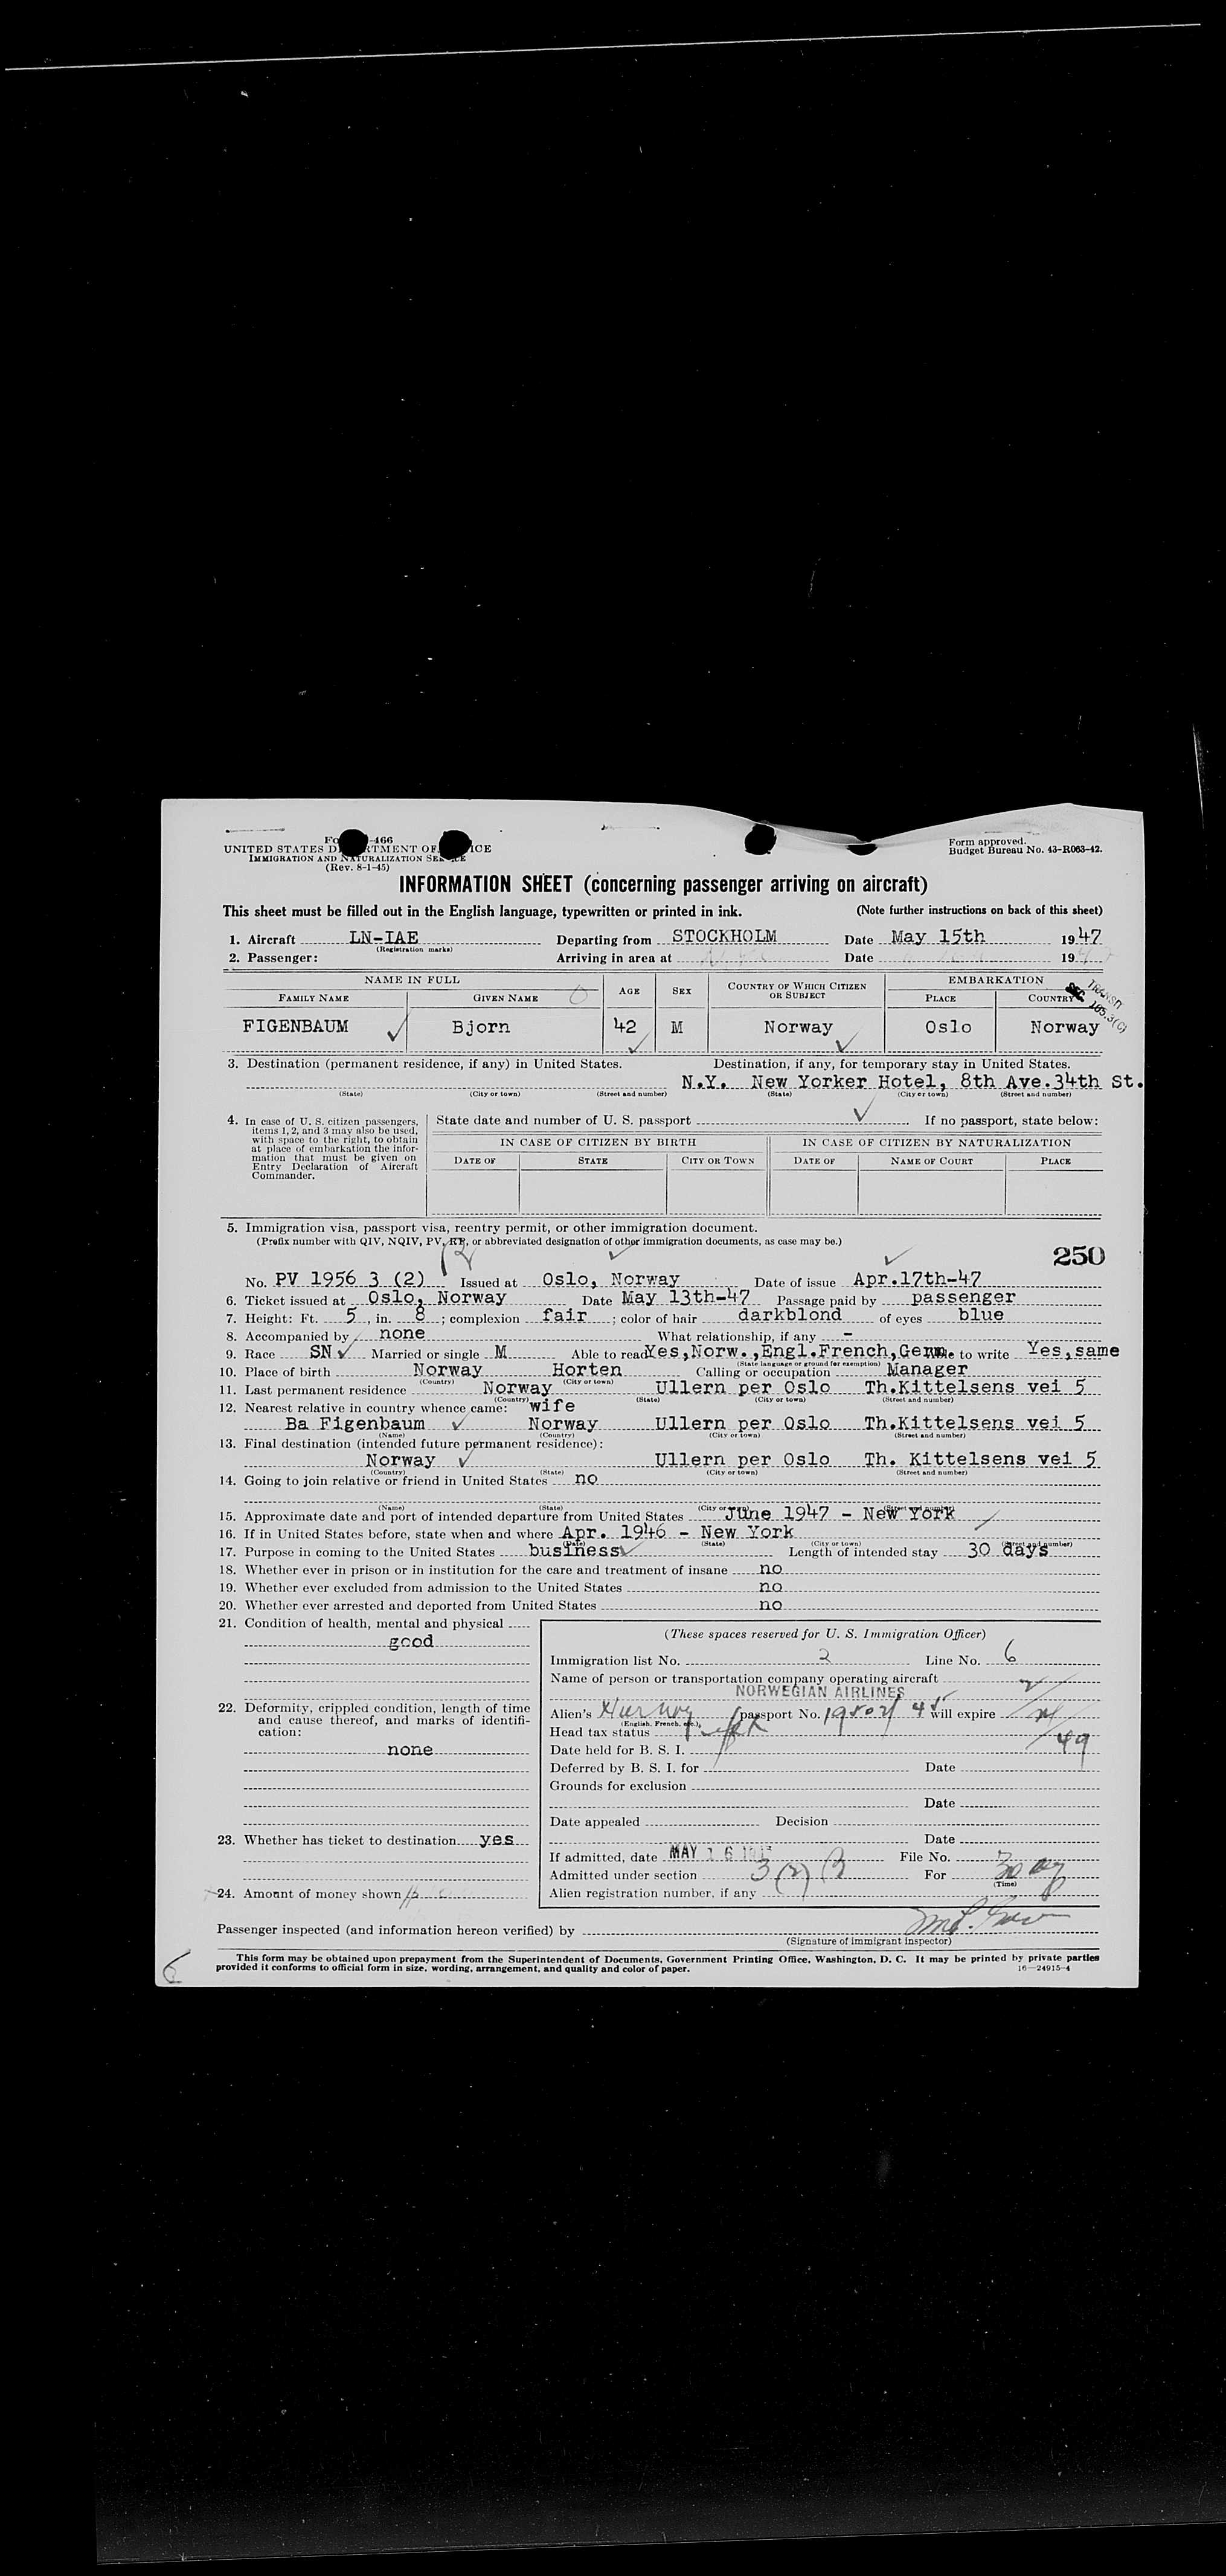 UNITED STATES DEPARTMENT OF JUSTICE
IMMIGRATION AND NATURALIZATION SERVICE
(Rev. 8-1-45)
Form approved.
Budget Bureau No. 43-R063-42.
INFORMATION SHEET (concerning passenger arriving on aircraft)
This sheet must be filled out in the English language, typewritten or printed in ink. (Note further instructions on back of this sheet)
1. Aircraft LN-IAE Departing from STOCKHOLM Date May 15th 1947
(Registration marks)
2. Passenger: Arriving in area at Date 19
NAME IN FULL AGE SEX COUNTRY OF WHICH CITIZEN OR SUBJECT EMBARKATION
FAMILY NAME GIVEN NAME PLACE COUNTRY
TRANSIT
FIGENBAUM Bjorn 42 M Norway Oslo Norway
3. Destination (permanent residence, if any) in United States. Destination, if any, for temporary stay in United States.
N.Y. New Yorker Hotel, 8th Ave.34th St.
(State) (City or town) (Street and number) (State) (City or town) (Street and number)
4. In case of U. S. citizen passengers, items 1, 2, and 3 may also be used, with space to the right, to obtain at place of embarkation the information that must be given on Entry Declaration of Aircraft Commander.
State date and number of U. S. passport If no passport, state below:
IN CASE OF CITIZEN BY BIRTH IN CASE OF CITIZEN BY NATURALIZATION
DATE OF STATE CITY OR TOWN DATE OF NAME OF COURT PLACE
5. Immigration visa, passport visa, reentry permit, or other immigration document.
(Prefix number with QIV, NQIV, PV, RP, or abbreviated designation of other immigration documents, as case may be.)
250
No. PV 1956 3 (2) Issued at Oslo, Norway Date of issue Apr.17th-47
6. Ticket issued at Oslo, Norway Date May 13th-47 Passage paid by passenger
7. Height: Ft. 5, in. 8; complexion fair; color of hair darkblond of eyes blue
8. Accompanied by none What relationship, if any -
9. Race SN Married or single M Able to read Yes,Norw.,Engl.French,Germ. to write Yes,same
(State language or ground for exemption)
10. Place of birth Norway Horten Calling or occupation Manager
(Country) (City or town)
11. Last permanent residence Norway Ullern per Oslo Th.Kittelsens vei 5
(Country) (State) (City or town) (Street and number)
12. Nearest relative in country whence came: wife
Ba Figenbaum Norway Ullern per Oslo Th.Kittelsens vei 5
(Name) (Country) (City or town) (Street and number)
13. Final destination (intended future permanent residence):
Norway Ullern per Oslo Th. Kittelsens vei 5
(Country) (State) (City or town) (Street and number)
14. Going to join relative or friend in United States no
(Name) (State) (City or town) (Street and number)
15. Approximate date and port of intended departure from United States June 1947 - New York
16. If in United States before, state when and where Apr. 1946 - New York
(Date) (State) (City or town) (Street and number)
17. Purpose in coming to the United States business Length of intended stay 30 days
18. Whether ever in prison or in institution for the care and treatment of insane no
19. Whether ever excluded from admission to the United States no
20. Whether ever arrested and deported from United States no
21. Condition of health, mental and physical
good
22. Deformity, crippled condition, length of time and cause thereof, and marks of identification:
none
23. Whether has ticket to destination yes
24. Amount of money shown
(These spaces reserved for U. S. Immigration Officer)
Immigration list No. 2 Line No. 6
Name of person or transportation company operating aircraft
NORWEGIAN AIRLINES
Alien's passport No. will expire
(English, French, etc.)
49
Head tax status
Date held for B. S. I.
Deferred by B. S. I. for Date
Grounds for exclusion
Date
Date appealed Decision
Date
If admitted, date MAY 16 File No.
Admitted under section 3(2) B For
(Time)
Alien registration number, if any
Passenger inspected (and information hereon verified) by
(Signature of immigrant inspector)
This form may be obtained upon prepayment from the Superintendent of Documents, Government Printing Office, Washington, D. C. It may be printed by private parties
provided it conforms to official form in size, wording, arrangement, and quality and color of paper. 16—24915-4
6